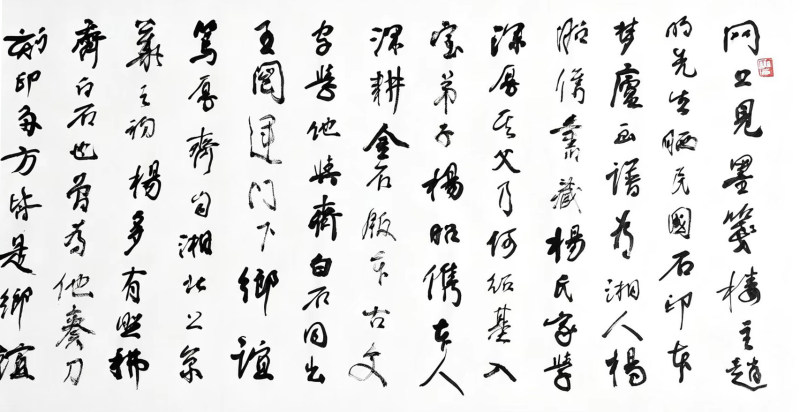 网上见墨笺楼主赵
明先生晒民國石印本
梦廬画譜为湘人楊
昭儁旧藏楊氏家學
深厚其父乃何紹基入
室弟子楊昭儁本人
深耕金石版本古文
字學他與齊白石同出
王闓運門下鄉誼
篤厚齊自湘北上京
華之初楊多有照拂
齊白石也曾為他奏刀
刻印多方皆是鄉誼